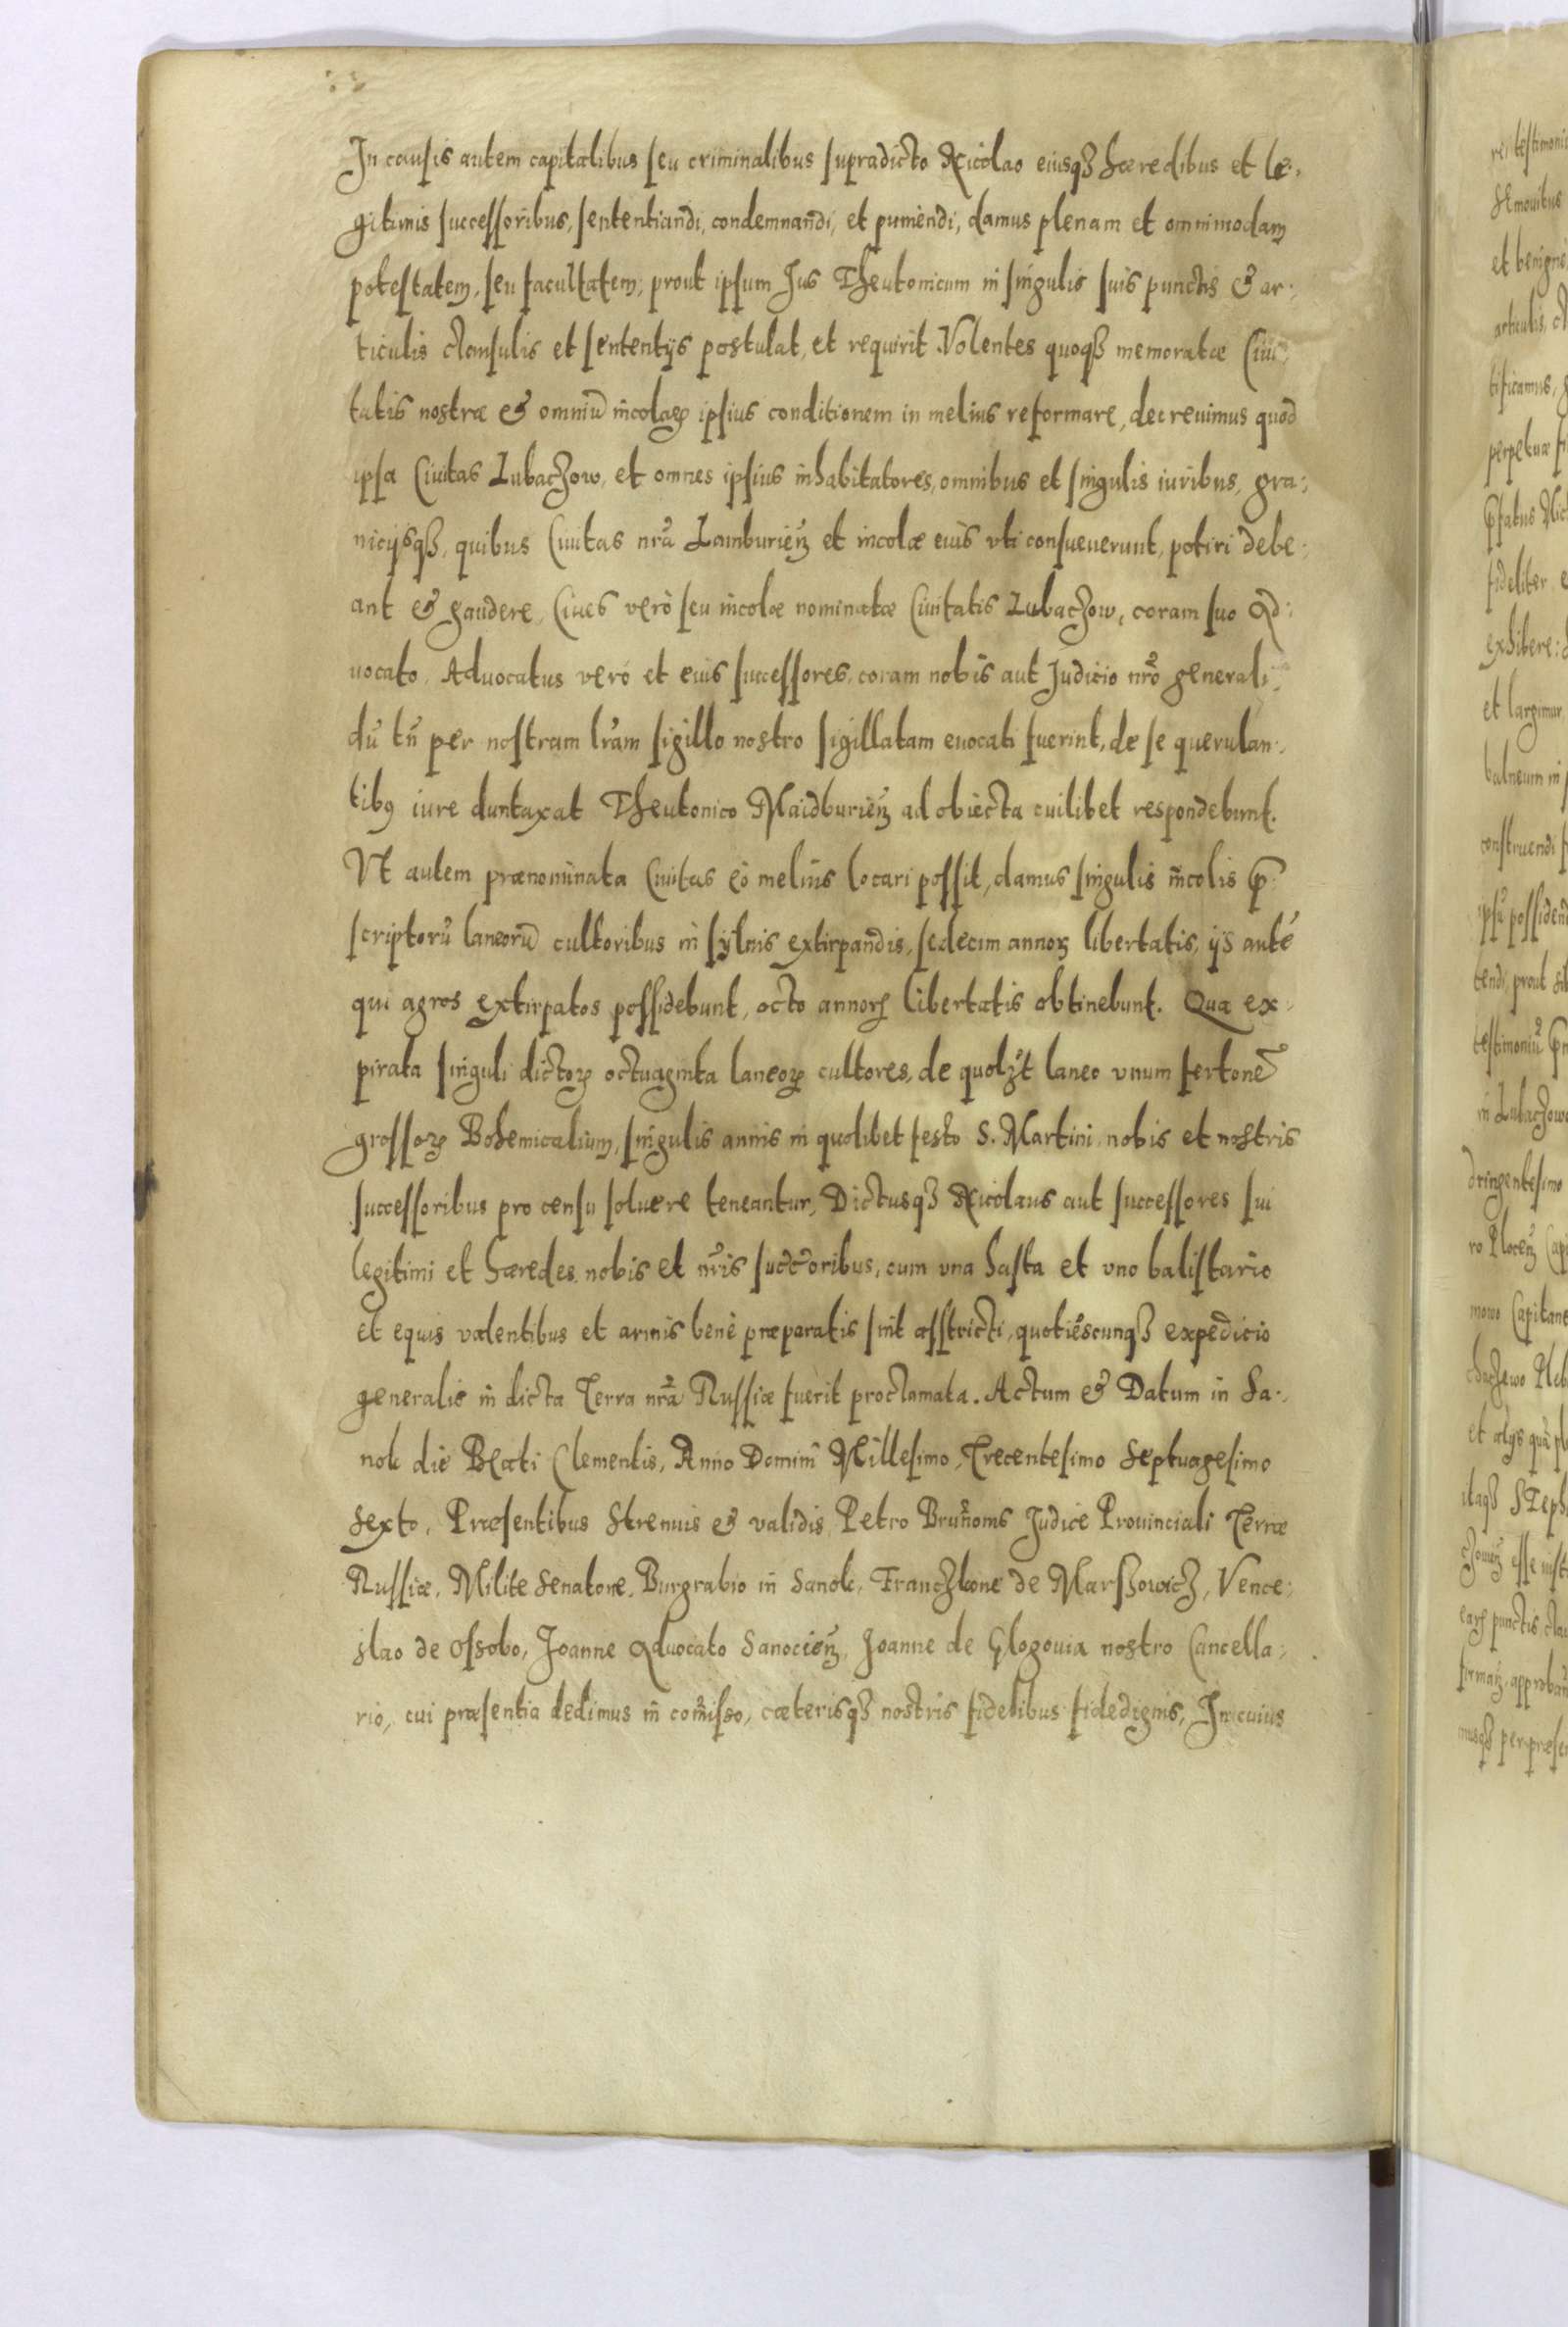 In causis autem capitalibus seu criminalibus supradicto Nicolao eiusqꝫ hæredibus et le:
gitimis successoribus, sententiandi, condemnandi, et puniendi, damus plenam et omnimodam
potestatem, seu facultatem, prout ipsum Jus Theutonicum in singulis suis punctis & ar:
ticulis clausulis et sententijs postulat, et requirit. Volentes quoqꝫ memoratæ Ciui
tatis nostræ & omniū incolaꝝ ipsius conditionem in melius reformare, decreuimus quod
ipsa Ciuitas Lubaczow, et omnes ipsius inhabitatores, omnibus et singulis iuribus, gra:
nicijsqꝫ, quibus Ciuitas nr̃a Lamburieñ et incolæ eius vti consueuerunt, potiri debe:
ant & gaudere, Ciues verò seu incolæ nominatæ Ciuitatis Lubaczow, coram suo Ad:
uocato, Aduocatus verò et eius successores, coram nobis aut Judicio nr̃o generali
dū tñ per nostram lr̃am sigillo nostro sigillatam euocati fuerint, de se querulan:
tibꝰ iure duntaxat Theutonico Maidburieñ ad obiecta cuilibet respondebunt.
Vt autem prænominata Ciuitas eò melius locari possit, damus singulis incolis p̃:
scriptorū laneorū cultoribus in syluis extirpandis, sedecim annoꝝ libertatis, ijs autē
qui agros extirpatos possidebunt, octo annoꝝ libertatis obtinebunt. Qua ex:
pirata singuli dictoꝝ octuaginta laneoꝝ cultores, de quolꝫt laneo vnum fertonē
grossoꝝ Bohemicalium, singulis annis in quolibet festo S. Martini nobis et nostris
successoribus pro censu soluere teneantur, Dictusqꝫ Nicolaus aut successores sui
legitimi et hæredes nobis et nr̃is succ̃oribus, cum vna hasta et vno balistario
et equis valentibus et armis benè præparatis sint asstricti, quotiescunqꝫ expeditio
generalis in dicta Terra nr̃a Russiæ fuerit proclamata. Actum & Datum in Sa:
nok die Beati Clementis, Anno Domini Millesimo, Trecentesimo Septuagesimo
Sexto, Præsentibus Strenuis & validis Petro Brunoms Judice Prouinciali Terræ
Russiæ, Milite Senatore, Burgrabio in Sanok, Franczkone de Marszowicz, Vence:
slao de Ossobo, Joanne Aduocato Sanocieñ, Joanne de Glogouia nostro Cancella:
rio, cui præsentia dedimus in com̃isso, cæterisqꝫ nostris fidelibus fidedignis, In cuius